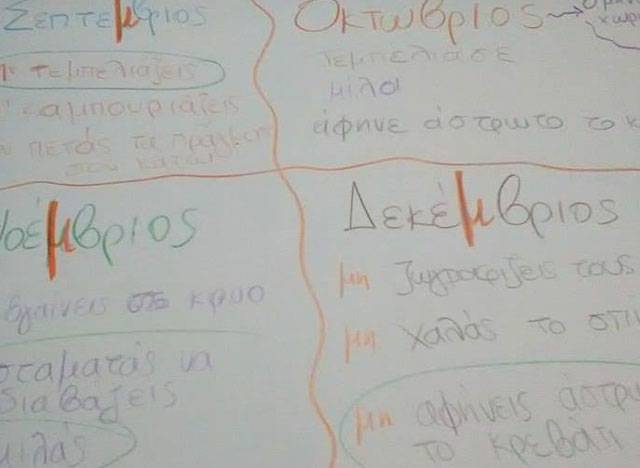 Σεπτέμβριος
τεμπελιάζεις
σαμπουριάζεις
πετάς τα πράγματα
σου κάτω
Οκτώβριος →
τεμπέλιασε
μίλα
άφηνε άστρωτο το κ
Νοέμβριος
βγαίνεις στο κρύο
σταματάς να
διαβάζεις
μιλάς
Δεκέμβριος
μη ζωγραφίζεις τους
μη χαλάς το σπί
μη αφήνεις άστρω
το κρεβάτι